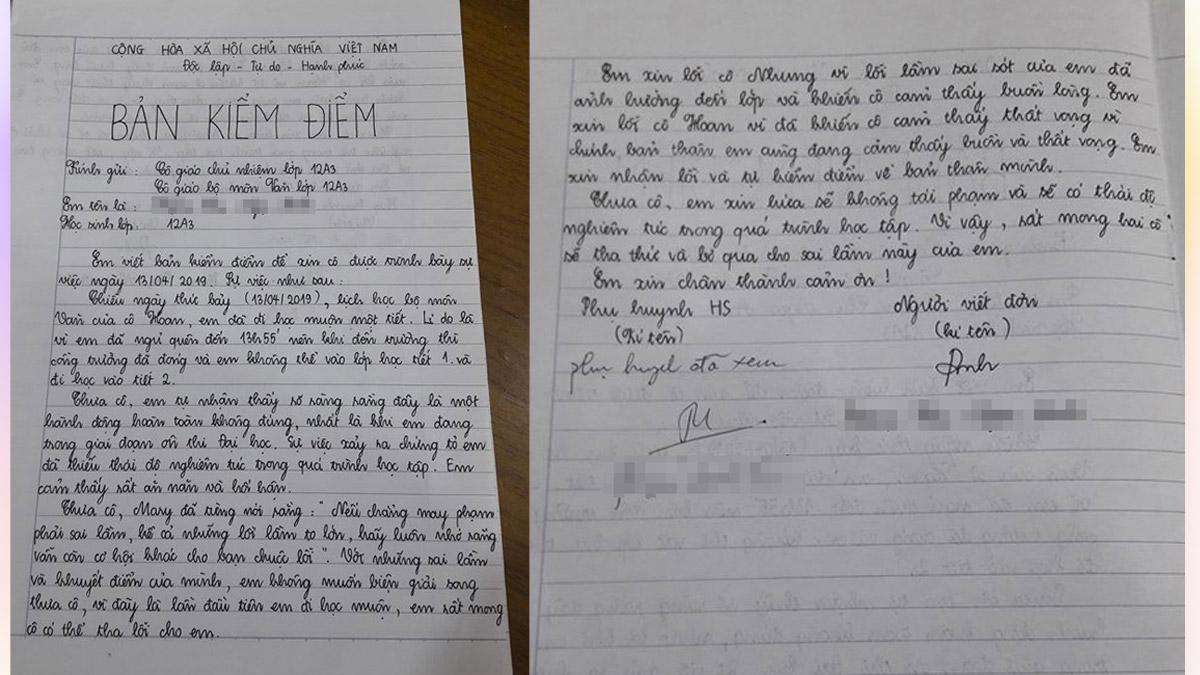 CỘNG HÒA XÃ HỘI CHỦ NGHĨA VIỆT NAM
Độc lập - Tự do - Hạnh phúc
BẢN KIỂM ĐIỂM
Kính gửi : Cô giáo chủ nhiệm lớp 12A3
Cô giáo bộ môn Văn lớp 12A3
Em tên là :
Học sinh lớp : 12A3
Em viết bản kiểm điểm để xin cô được trình bày sự
việc ngày 13/04/2019. Sự việc như sau :
Chiều ngày thứ bảy (13/04/2019), lịch học bộ môn
Văn của cô Hoan, em đã đi học muộn một tiết. Lí do là
vì em đã ngủ quên đến 13h55' nên khi đến trường thì
cổng trường đã đóng và em không thể vào lớp học tiết 1 và
đi học vào tiết 2.
Thưa cô, em tự nhận thấy rõ ràng rằng đây là một
hành động hoàn toàn không đúng, nhất là khi em đang
trong giai đoạn ôn thi Đại học. Sự việc xảy ra chứng tỏ em
đã thiếu thái độ nghiêm túc trong quá trình học tập. Em
cảm thấy rất ăn năn và hối hận.
Thưa cô, Mary đã từng nói rằng : "Nếu chẳng may phạm
phải sai lầm, kể cả những lỗi lầm to lớn, hãy luôn nhớ rằng
vẫn còn cơ hội khác cho bạn chuộc lỗi". Với những sai lầm
và khuyết điểm của mình, em không muốn biện giải song
thưa cô, vì đây là lần đầu tiên em đi học muộn, em rất mong
cô có thể tha lỗi cho em.
Em xin lỗi cô Nhung vì lỗi lầm sai sót của em đã
ảnh hưởng đến lớp và khiến cô cảm thấy buồn lòng. Em
xin lỗi cô Hoan vì đã khiến cô cảm thấy thất vọng vì
chính bản thân em cũng đang cảm thấy buồn và thất vọng. Em
xin nhận lỗi và tự kiểm điểm về bản thân mình.
Thưa cô, em xin hứa sẽ không tái phạm và sẽ có thái độ
nghiêm túc trong quá trình học tập. Vì vậy, rất mong hai cô
sẽ tha thức và bỏ qua cho sai lầm này của em.
Em xin chân thành cảm ơn !
Phụ huynh HS Người viết đơn
(Kí tên) (kí tên)
phụ huynh đã xem Anh